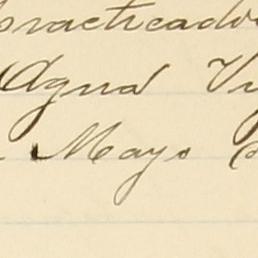 practicado
Agua
Mayo